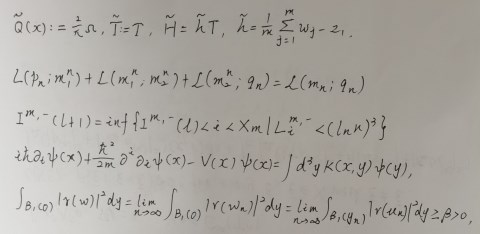 Q̃(x) := 2/π Ω, T̃ := T, H̃ = h̃T, h̃ = 1/m ∑_{j=1}^{m} w_j - z_1.
L(p_n; m_1^n) + L(m_1^n; m_2^n) + L(m_2^n; q_n) = L(m_n; q_n)
I^{m,-}(l+1) = inf{I^{m,-}(l) < i < X_m | L_i^{m,-} < (ln n)^3}
iħ∂_t ψ(x) + ħ²/2m ∂^i ∂_i ψ(x) - V(x) ψ(x) = ∫ d³y K(x,y) ψ(y),
∫_{B_1(0)} |r(w)|² dy = lim_{n→∞} ∫_{B_1(0)} |r(w_n)|² dy = lim_{n→∞} ∫_{B_1(y_n)} |r(u_n)|² dy ≥ β > 0,